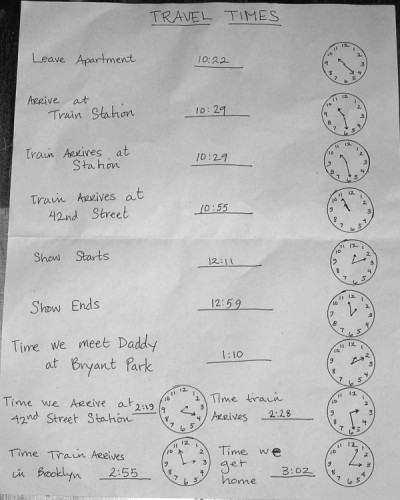 TRAVEL TIMES
Leave Apartment 10:22
Arrive at
Train Station 10:29
Train Arrives at
Station 10:29
Train Arrives at
42nd Street 10:55
Show Starts 12:11
Show Ends 12:59
Time we meet Daddy
at Bryant Park 1:10
Time we Arrive at 2:19
42nd Street Station
Time train
Arrives 2:28
Time Train Arrives
in Brooklyn 2:55
Time we
get
home 3:02